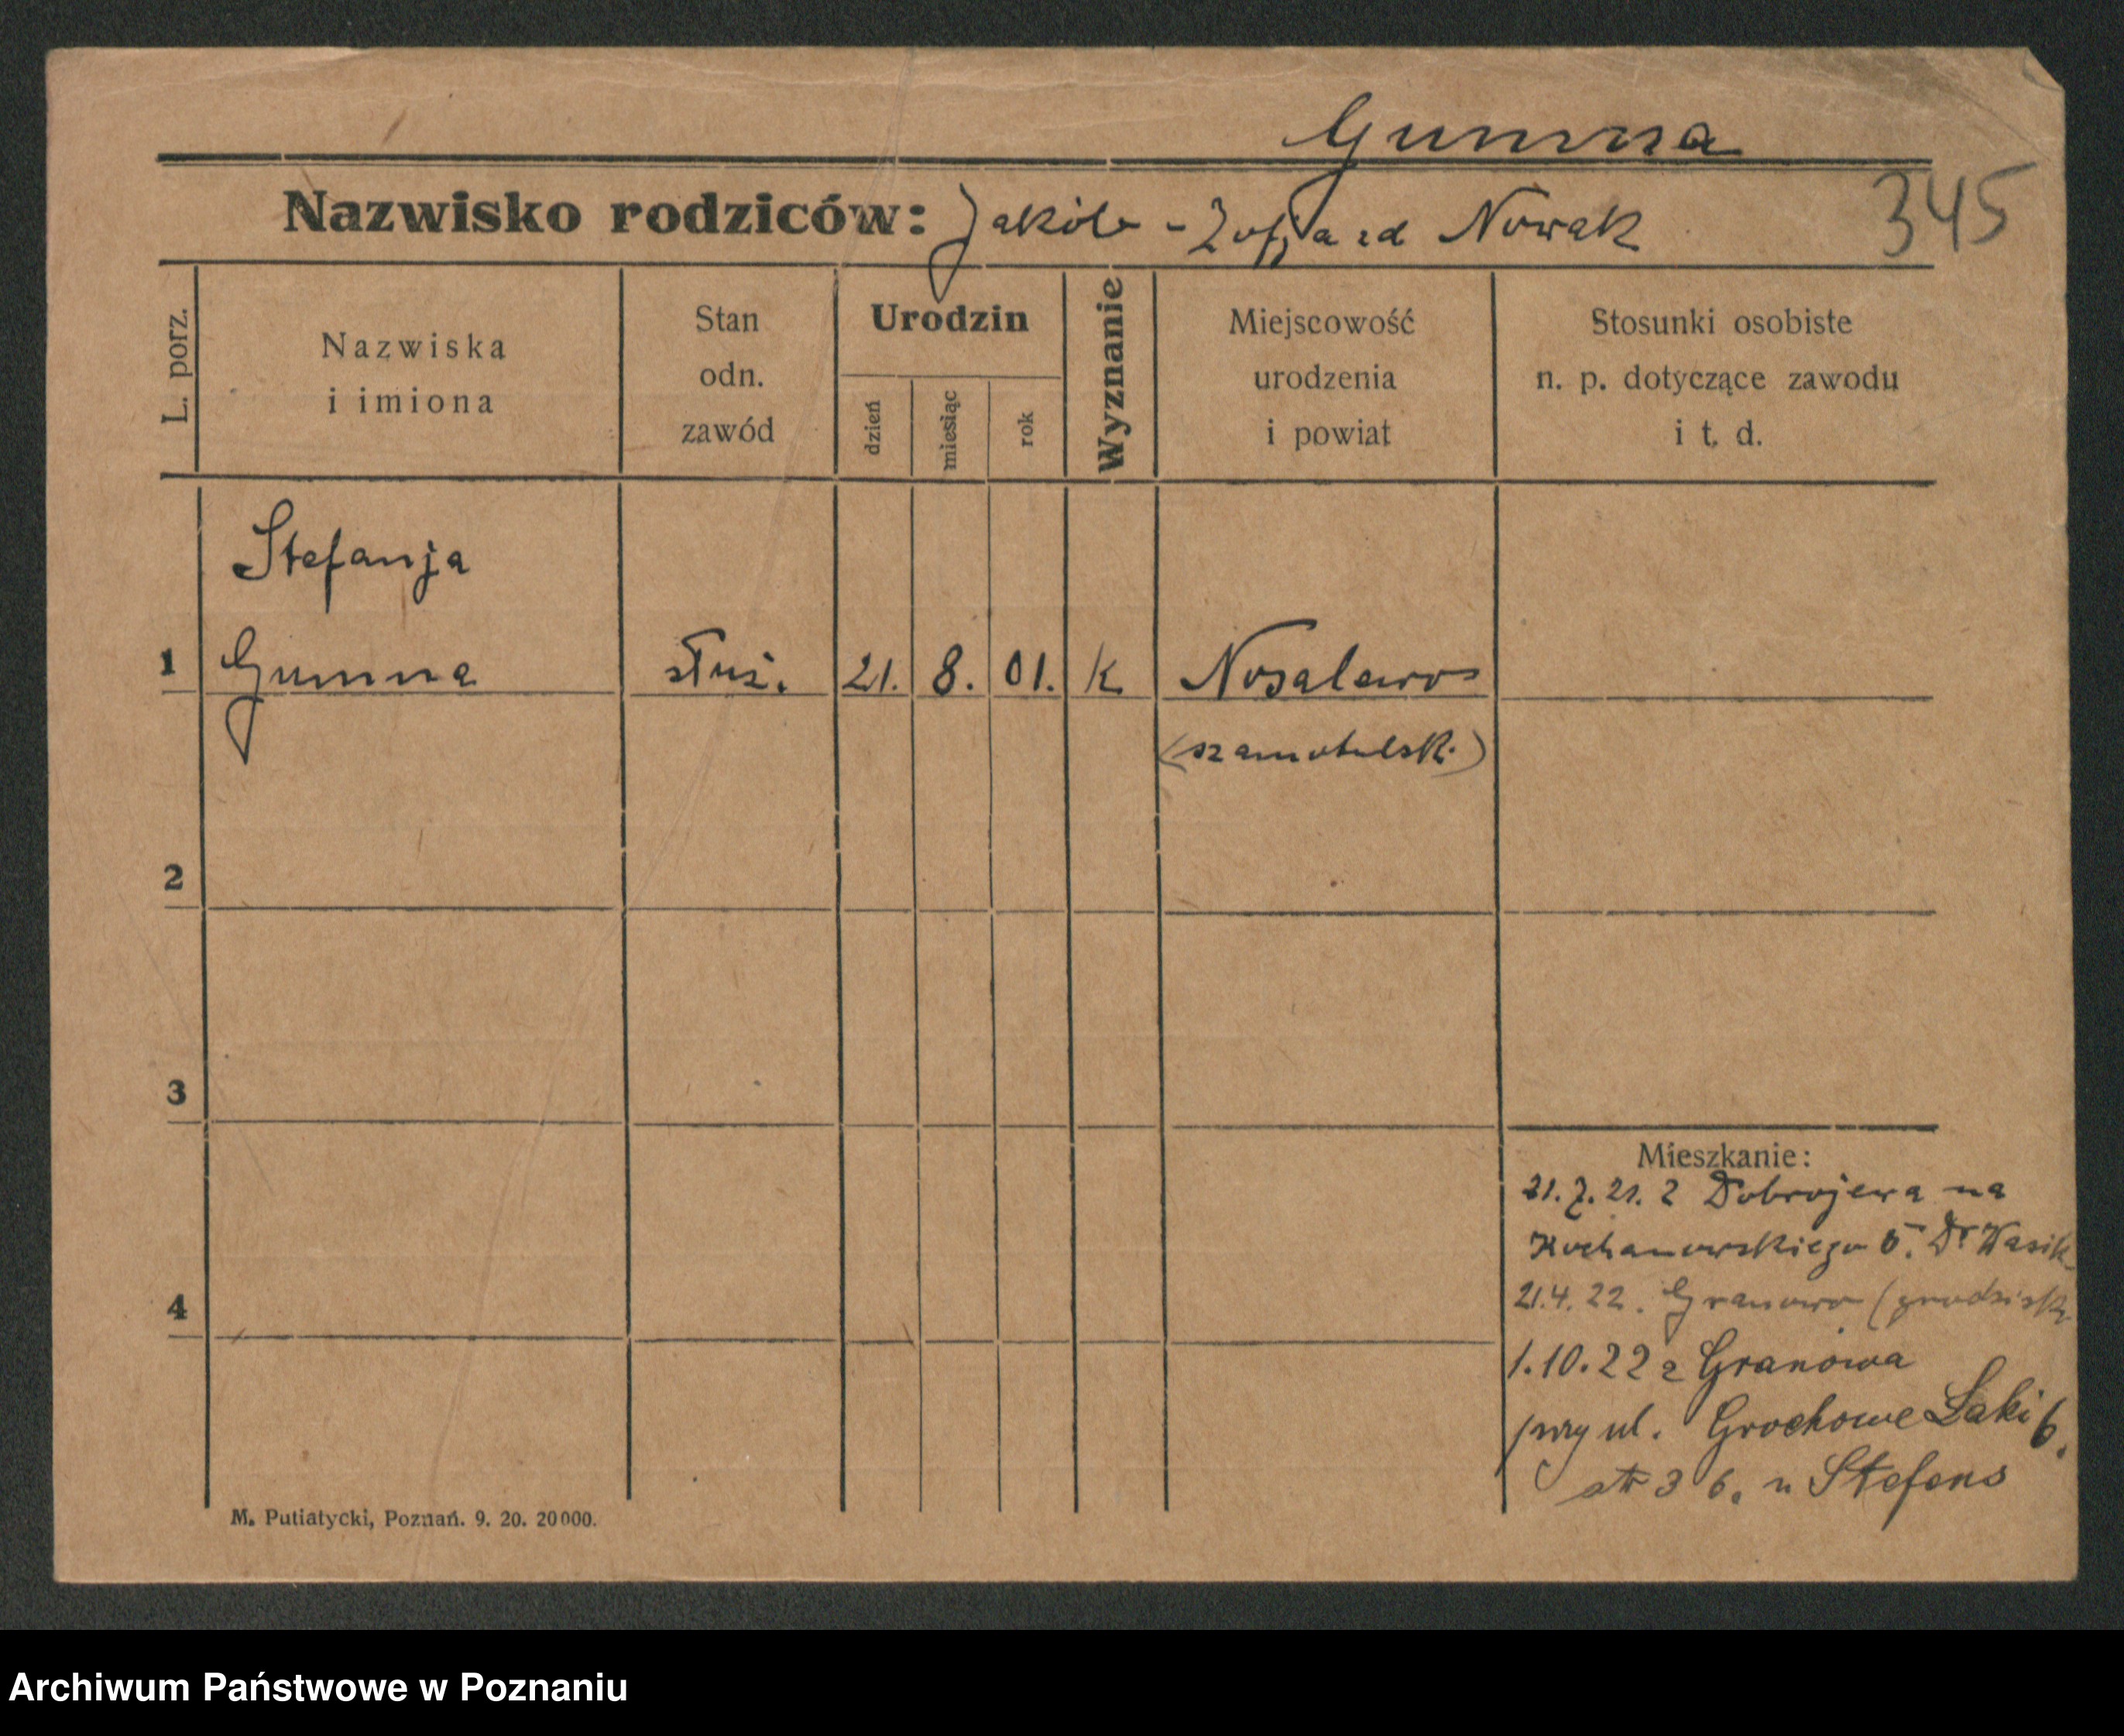 Gumna
Nazwisko rodziców: Jakób - Zofja zd Nowak
345
L. porz.
Nazwiska
i imiona
Stan
odn.
zawód
Urodzin
dzień
miesiąc
rok
Wyznanie
Miejscowość
urodzenia
i powiat
Stosunki osobiste
n. p. dotyczące zawodu
i t. d.
Stefanja
1 Gumna służ. 21. 8. 01. K. Nosalewo
(szamotulsk.)
2
3
4
Mieszkanie:
21.7.21. z Dobrojewa na
Kochanowskiego 5. Dr Wasik
21.4.22. Granowo (grodzisk
1.10.22 z Granowa
przy ul. Grochowe Łaki 6.
u Stefens
M. Putiatycki, Poznań. 9. 20. 20000.
Archiwum Państwowe w Poznaniu